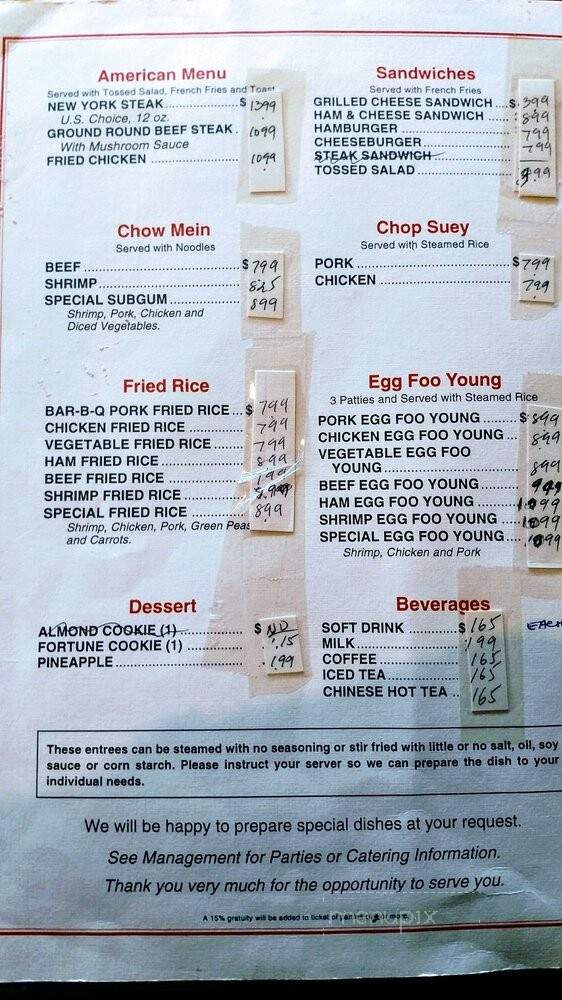 American Menu
Served with Tossed Salad, French Fries and Toast
NEW YORK STEAK $ 1399
U.S. Choice, 12 oz.
GROUND ROUND BEEF STEAK 1099
With Mushroom Sauce
FRIED CHICKEN 1099
Sandwiches
Served with French Fries
GRILLED CHEESE SANDWICH $ 399
HAM & CHEESE SANDWICH 899
HAMBURGER 799
CHEESEBURGER 799
STEAK SANDWICH
TOSSED SALAD
Chow Mein
Served with Noodles
BEEF $ 799
SHRIMP 825
SPECIAL SUBGUM 899
Shrimp, Pork, Chicken and
Diced Vegetables.
Chop Suey
Served with Steamed Rice
PORK $ 799
CHICKEN 799
Fried Rice
BAR-B-Q PORK FRIED RICE $ 799
CHICKEN FRIED RICE 799
VEGETABLE FRIED RICE 799
HAM FRIED RICE 899
BEEF FRIED RICE
SHRIMP FRIED RICE
SPECIAL FRIED RICE 899
Shrimp, Chicken, Pork, Green Peas
and Carrots.
Egg Foo Young
3 Patties and Served with Steamed Rice
PORK EGG FOO YOUNG $ 899
CHICKEN EGG FOO YOUNG 899
VEGETABLE EGG FOO
YOUNG 899
BEEF EGG FOO YOUNG
HAM EGG FOO YOUNG 1099
SHRIMP EGG FOO YOUNG 1099
SPECIAL EGG FOO YOUNG 1099
Shrimp, Chicken and Pork
Dessert
ALMOND COOKIE (1) $ NO
FORTUNE COOKIE (1) .15
PINEAPPLE 1.99
Beverages
SOFT DRINK $ 165 EACH
MILK 199
COFFEE 165
ICED TEA 165
CHINESE HOT TEA 165
These entrees can be steamed with no seasoning or stir fried with little or no salt, oil, soy
sauce or corn starch. Please instruct your server so we can prepare the dish to your
individual needs.
We will be happy to prepare special dishes at your request.
See Management for Parties or Catering Information.
Thank you very much for the opportunity to serve you.
A 15% gratuity will be added to ticket of parties or more.
menupix